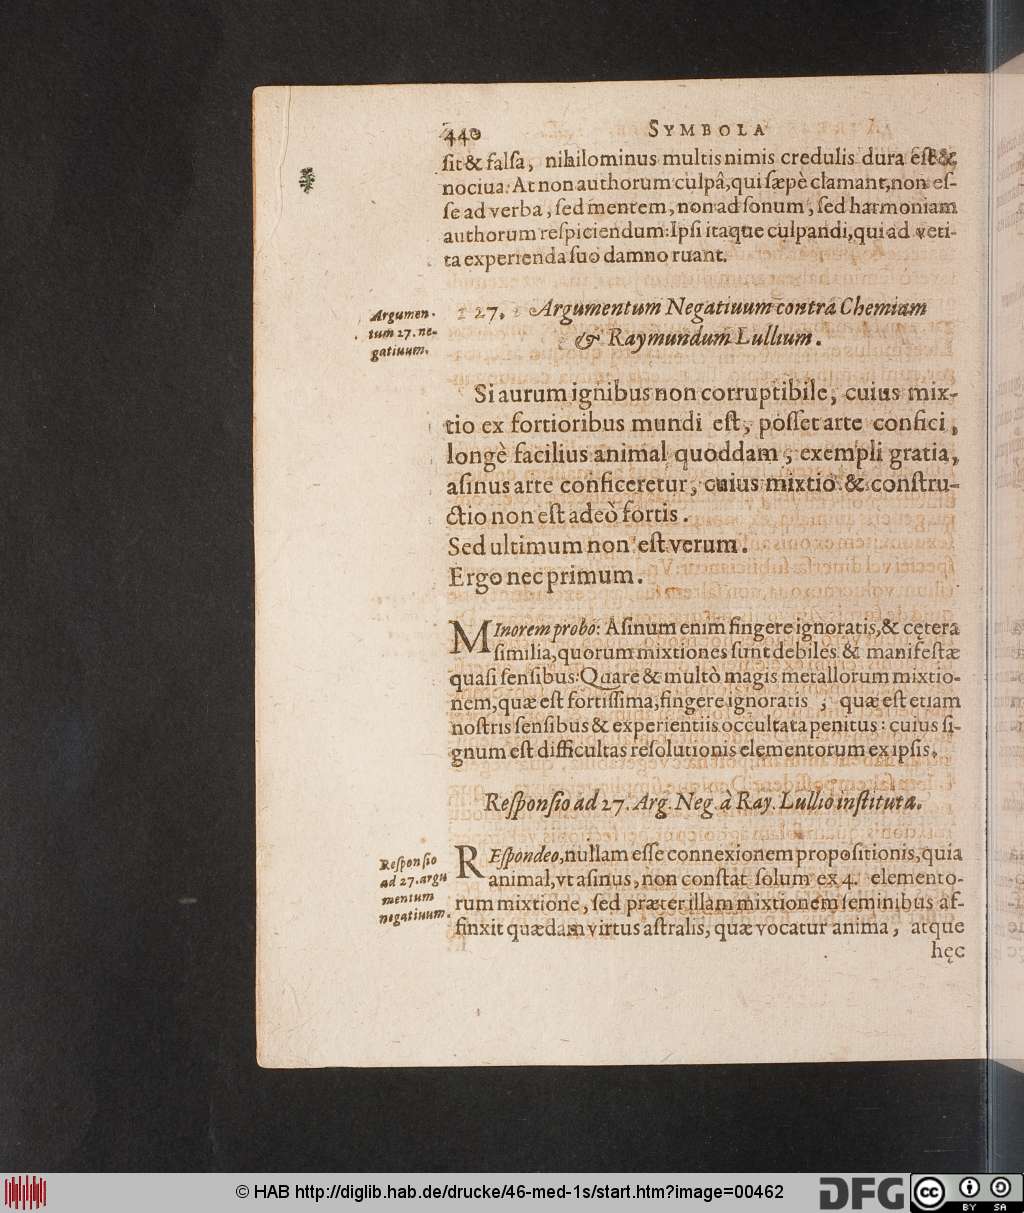 440 SYMBOLA
sit & falsa, nihilominus multis nimis credulis dura est &
nociua. At non authorum culpâ, qui sæpè clamant, non es-
se ad verba, sed mentem, non ad sonum, sed harmoniam
authorum respiciendum: Ipsi itaque culpandi, qui ad veri-
ta experienda suo damno ruant.
Argumen-
tum 27. ne-
gatiuum.
27. Argumentum Negatiuum contra Chemiam
& Raymundum Lullium.
Si aurum ignibus non corruptibile, cuius mix-
tio ex fortioribus mundi est, posset arte confici,
longè facilius animal quoddam, exempli gratia,
asinus arte conficeretur, cuius mixtio & constru-
ctio non est adeò fortis.
Sed ultimum non est verum.
Ergo nec primum.
MInorem probo: Asinum enim fingere ignoratis, & cętera
similia, quorum mixtiones sunt debiles & manifestæ
quasi sensibus: Quare & multò magis metallorum mixtio-
nem, quæ est fortissima, fingere ignoratis, quæ est etiam
nostris sensibus & experientiis occultata penitus: cuius si-
gnum est difficultas resolutionis elementorum ex ipsis.
Responsio ad 27. Arg. Neg. à Ray. Lullio instituta.
Responsio
ad 27. argu
mentum
negatiuum.
REspondeo, nullam esse connexionem propositionis, quia
animal, vt asinus, non constat solum ex 4. elemento-
rum mixtione, sed præter illam mixtionem seminibus af-
finxit quædam virtus astralis, quæ vocatur anima, atque
hęc
© HAB http://diglib.hab.de/drucke/46-med-1s/start.htm?image=00462
DFG
cc BY SA